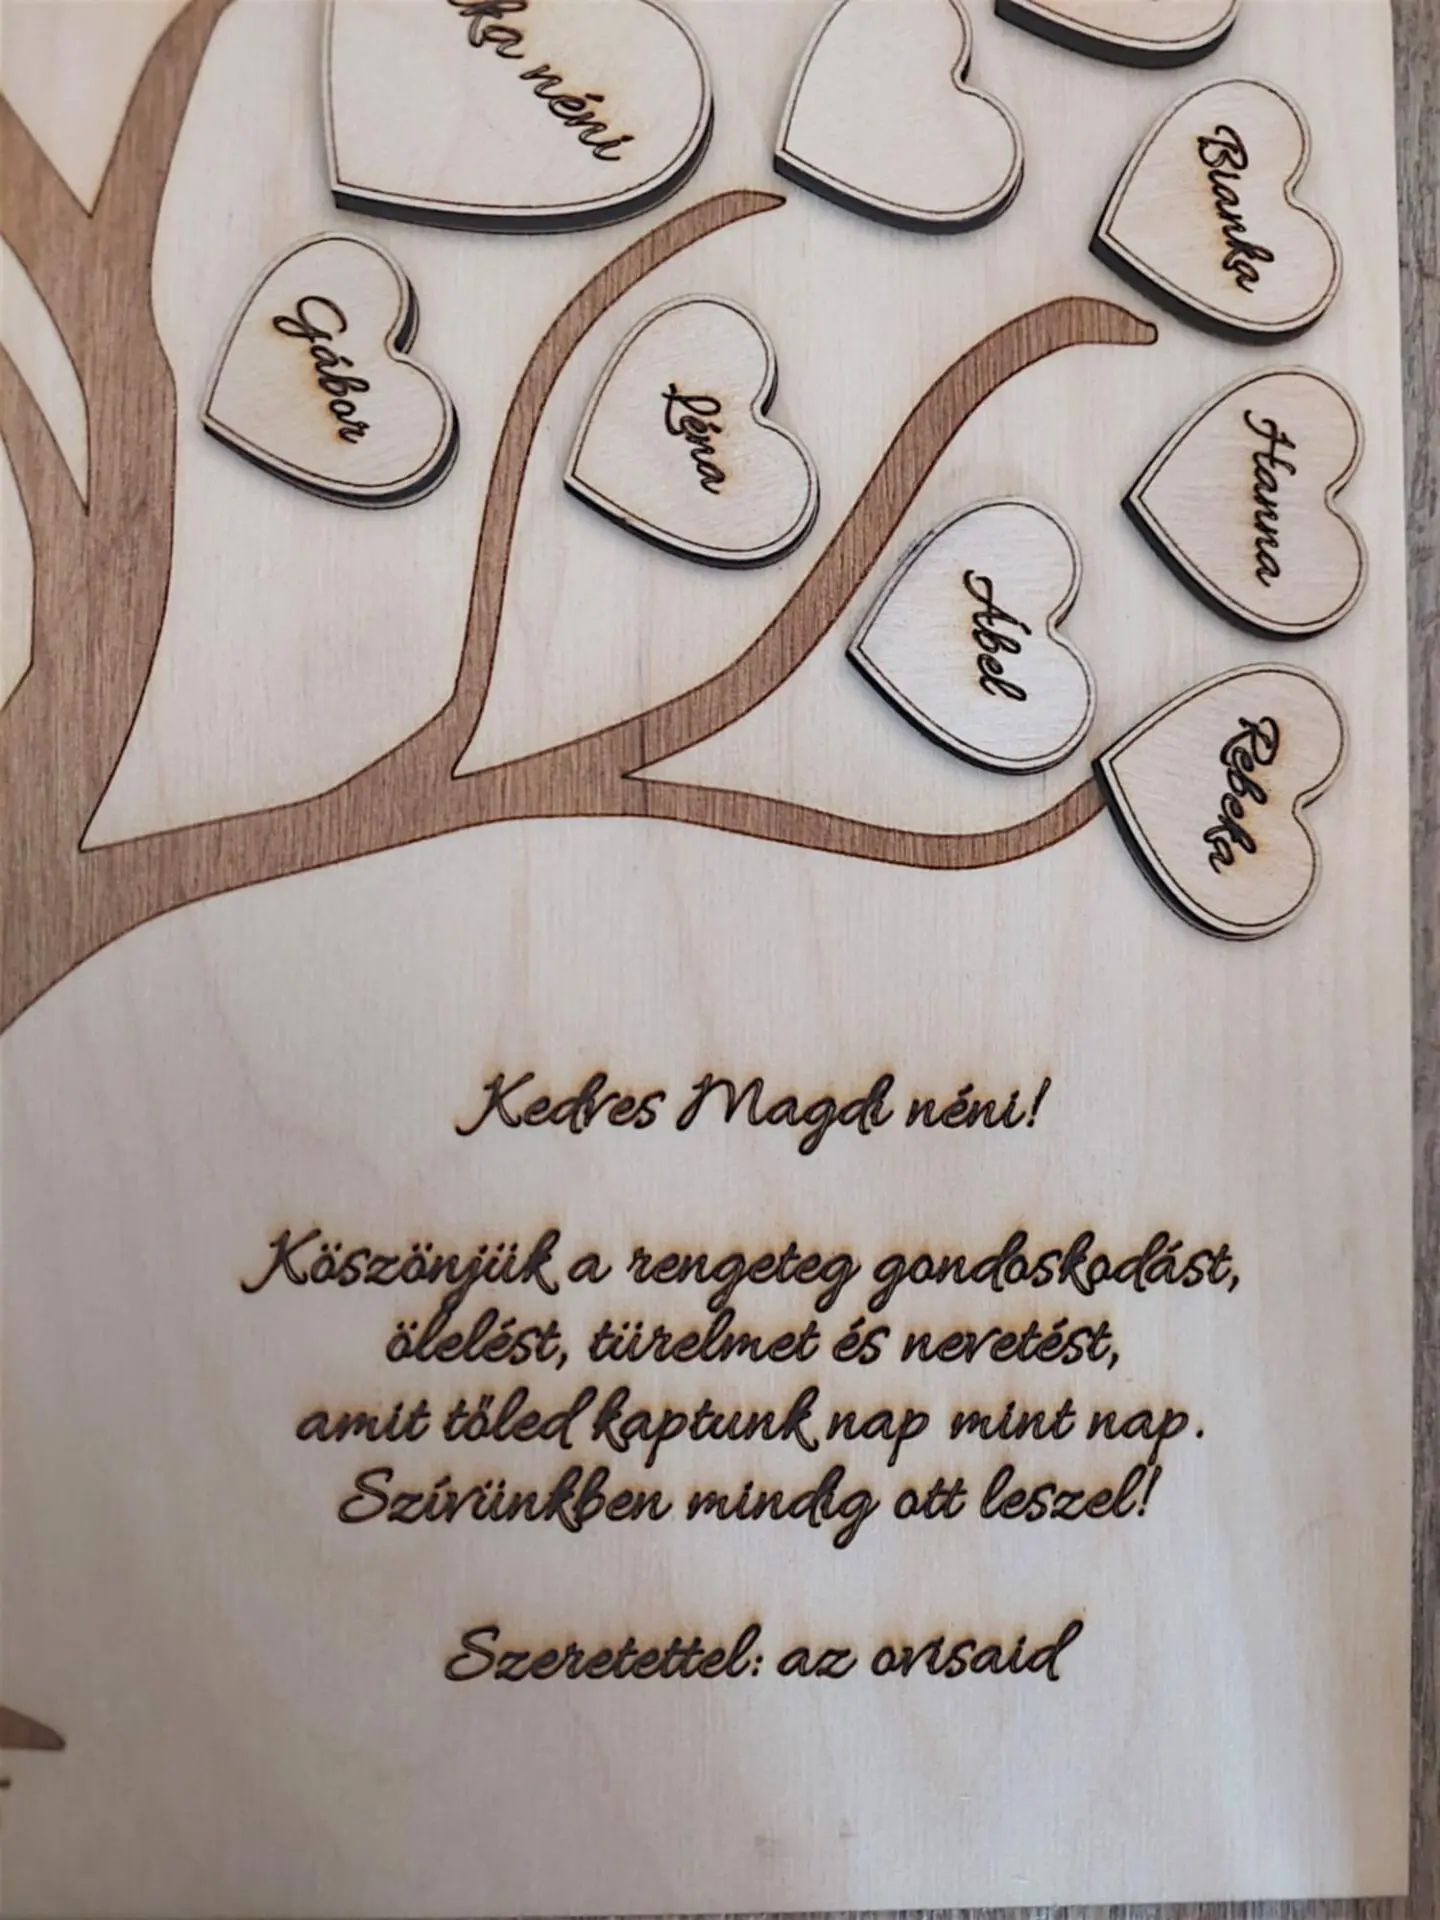 néni
Bianka
Gábor
Léna
Hanna
Ábel
Rebeka
Kedves Magdi néni!
Köszönjük a rengeteg gondoskodást,
ölelést, türelmet és nevetést,
amit tőled kaptunk nap mint nap.
Szívünkben mindig ott leszel!
Szeretettel: az ovisaid